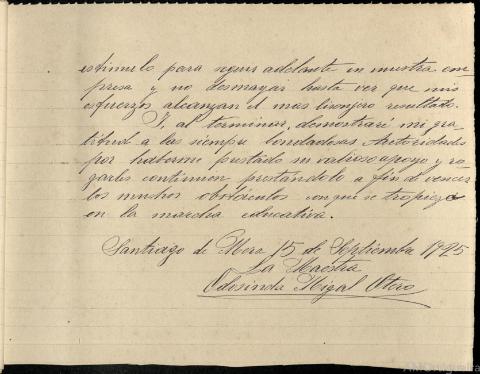 estimulo para seguir adelante en nuestra em-
presa y no desmayar hasta ver que mis
esfuerzos alcanzan el mas lisonjero resultado.
Y, al terminar, demostraré mi gra-
titud a las siempre bondadosas Autoridades
por haberme prestado su valioso apoyo y ro-
garles continuen prestándolo a fin de vencer
los muchos obstáculos con que se tropieza
en la marcha educativa.
Santiago de Mora 15 de Septiembre 1925
La Maestra
Odosinda Migal Otero